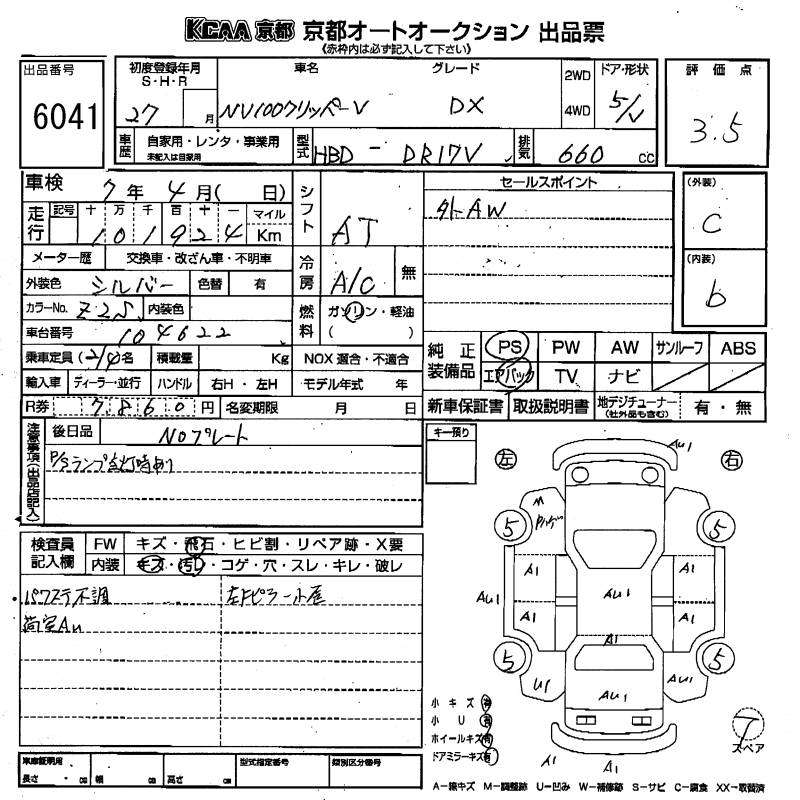 KCAA 京都 京都オートオークション 出品票
(赤枠内は必ず記入して下さい)
出品番号
6041
初度登録年月
S・H・R
車名
グレード
2WD
4WD
ドア・形状
27 月
NV100クリッパーV
DX
5/V
評価点
3.5
車歴
自家用・レンタ・事業用
未記入は自家用
型式
HBD - DR17V
排気
660 cc
車検
7年 4月( 日)
シフト
AT
セールスポイント
外AW
(外装)
C
(内装)
b
走行
記号 十 万 千 百 十 一 マイル
101924 Km
メーター歴
交換車・改ざん車・不明車
冷房
A/C
無
外装色
シルバー
色替
有
カラーNo.
Z2S
内装色
燃料
ガソリン・軽油
( )
車台番号
104622
乗車定員 (2/4)名
積載量
Kg
NOX 適合・不適合
純正装備品
PS
PW
AW
サンルーフ
ABS
エアバック
TV
ナビ
輸入車
ディーラー・並行
ハンドル
右H・左H
モデル年式 年
R券
7860円
名変期限
月 日
新車保証書
取扱説明書
地デジチューナー
(社外品も含む)
有・無
注意事項(出品店記入)
後日品
Noプレート
P/Sランプ点灯時あり
キー預り
左
右
検査員記入欄
FW
キズ・飛石・ヒビ割・リペア跡・X要
内装
キズ・汚レ・コゲ・穴・スレ・キレ・破レ
パワステ不調
左Fピラー小凹
荷室AU
AU1
M
5
5
A1
A1
AU1
AU1
AU1
A1
A1
A1
5
5
U1
AU1
AU1
A1
A1
小キズ 有
小U 有
ホイールキズ 有
ドアミラーキズ 有
T
スペア
車庫証明用
長さ cm
幅 cm
高さ cm
型式指定番号
類別区分番号
A-線キズ M-調整跡 U-凹み W-補修跡 S-サビ C-腐食 XX-取替済